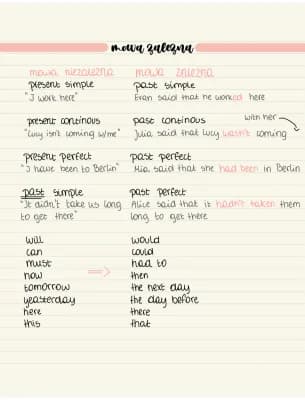 mowa zależna
mowa niezależna mowa zależna
present simple past simple
"I work here" Evan said that he worked here
with her
present continous past continous
"Lucy isn't coming w/me" Julia said that Lucy wasn't coming
present perfect past perfect
"I have been to Berlin" Mia said that she had been in Berlin
past simple past perfect
"It didn't take us long Alice said that it hadn't taken them
to get there" long to get there
will would
can could
must had to
now => then
tomorrow the next day
yeasterday the day before
here there
this that